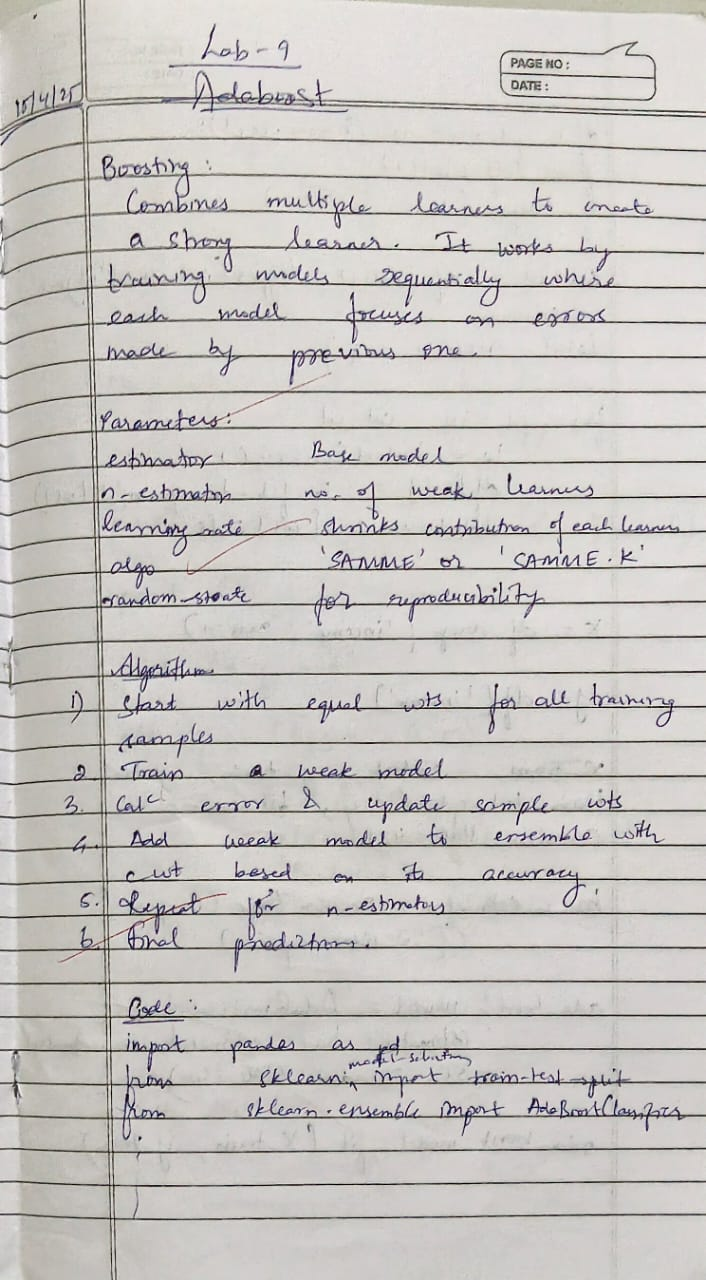 Lab-9
PAGE NO :
DATE :
15/4/25
Adaboost
Boosting :
Combines multiple learners to create
a strong learner. It works by
training models sequentially where
each model focuses on errors
made by previous one.
Parameters:
estimator Base model
n-estimators no. of weak learners
learning rate shrinks contribution of each learner
algo 'SAMME' or 'SAMME.R'
random-state for reproducibility
Algorithm
1) Start with equal wts for all training
samples
2 Train a weak model
3. Calc error & update sample wts
4. Add weak model to ensemble with
a wt based on its accuracy.
5. Repeat for n-estimators
6. Final predictions.
Code :
import pandas as pd
from sklearn.model-selection import train-test-split
from sklearn.ensemble import AdaBoostClassifier